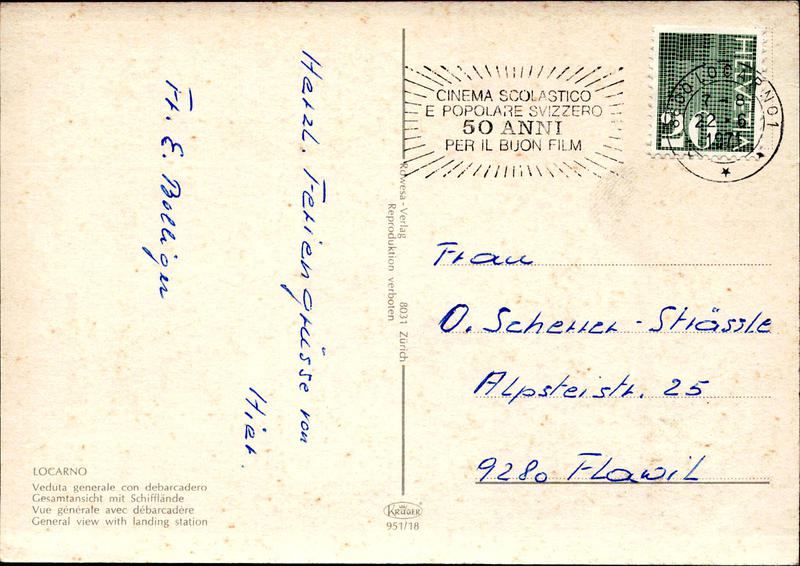 Herzl. Feriengrüsse von
Hier.
Fr. E. Bolliger
LOCARNO
Veduta generale con debarcadero
Gesamtansicht mit Schifflände
Vue générale avec débarcadère
General view with landing station
Rowesa-Verlag 8031 Zürich
Reproduktion verboten
KRÜGER
951/18
CINEMA SCOLASTICO
E POPOLARE SVIZZERO
50 ANNI
PER IL BUON FILM
HELVETIA
20
6600 LOCARNO 1
22-6
1971
Frau
O. Scherrer-Strässle
Alpsteistr. 25
9280 Flawil